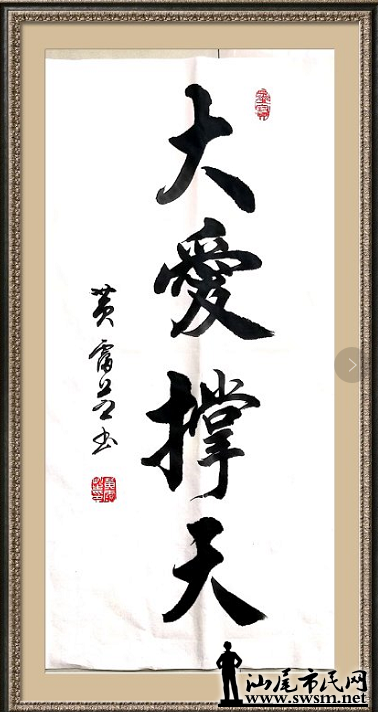 大愛撐天
黄露芬书
汕尾市民网
www.swsm.net